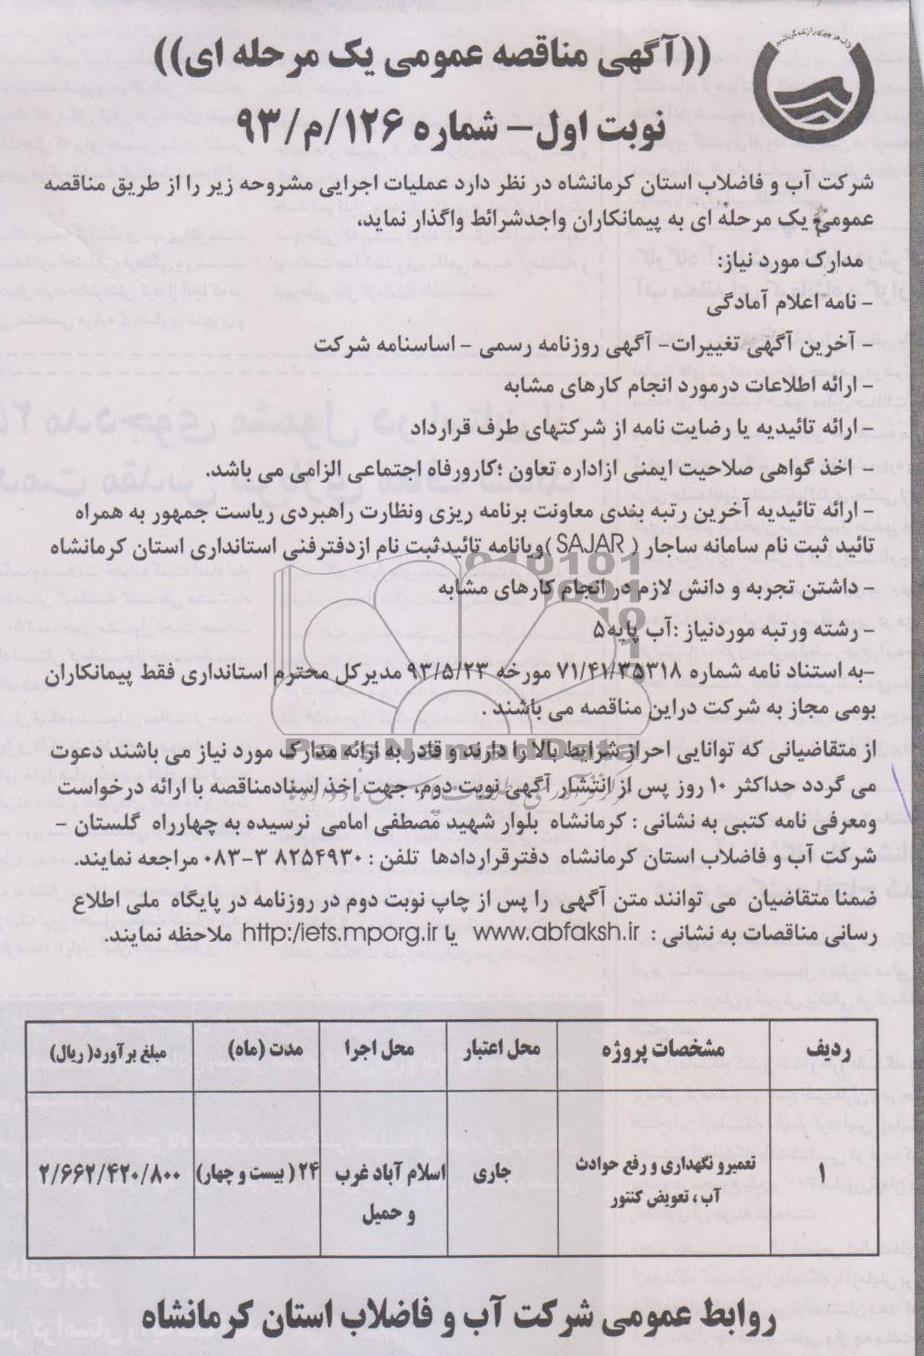 ((آگهی مناقصه عمومی یک مرحله ای))
نوبت اول- شماره ۱۲۶/م/۹۳
شرکت آب و فاضلاب استان کرمانشاه در نظر دارد عملیات اجرایی مشروحه زیر را از طریق مناقصه
عمومی یک مرحله ای به پیمانکاران واجدشرائط واگذار نماید.
مدارک مورد نیاز:
- نامه اعلام آمادگی
- آخرین آگهی تغییرات- آگهی روزنامه رسمی - اساسنامه شرکت
- ارائه اطلاعات درمورد انجام کارهای مشابه
- ارائه تائیدیه یا رضایت نامه از شرکتهای طرف قرارداد
- اخذ گواهی صلاحیت ایمنی ازاداره تعاون ؛کارورفاه اجتماعی الزامی می باشد.
- ارائه تائیدیه آخرین رتبه بندی معاونت برنامه ریزی ونظارت راهبردی ریاست جمهور به همراه
تائید ثبت نام سامانه ساجار ( SAJAR )ویانامه تائیدثبت نام ازدفترفنی استانداری استان کرمانشاه
- داشتن تجربه و دانش لازم در انجام کارهای مشابه
- رشته ورتبه موردنیاز :آب پایه۵
-به استناد نامه شماره ۷۱/۴۱/۳۵۳۱۸ مورخه ۹۳/۵/۲۳ مدیرکل محترم استانداری فقط پیمانکاران
بومی مجاز به شرکت دراین مناقصه می باشند .
ParsNamadData
از متقاضیانی که توانایی احراز شرایط بالا را دارند و قادر به ارائه مدارک مورد نیاز می باشند دعوت
می گردد حداکثر ۱۰ روز پس از انتشار آگهی نوبت دوم، جهت اخذ اسنادمناقصه با ارائه درخواست
ومعرفی نامه کتبی به نشانی : کرمانشاه بلوار شهید مصطفی امامی نرسیده به چهارراه گلستان -
شرکت آب و فاضلاب استان کرمانشاه دفترقراردادها تلفن : ۳۸۲۵۴۹۳۰-۰۸۳ مراجعه نمایند.
ضمنا متقاضیان می توانند متن آگهی را پس از چاپ نوبت دوم در روزنامه در پایگاه ملی اطلاع
رسانی مناقصات به نشانی : www.abfaksh.ir یا http:/iets.mporg.ir ملاحظه نمایند.
ردیف مشخصات پروژه محل اعتبار محل اجرا مدت (ماه) مبلغ برآورد( ریال)
۱ تعمیرو نگهداری و رفع حوادث آب ، تعویض کنتور جاری اسلام آباد غرب و حمیل ۲۴ ( بیست و چهار) ۲/۶۶۲/۴۲۰/۸۰۰
روابط عمومی شرکت آب و فاضلاب استان کرمانشاه